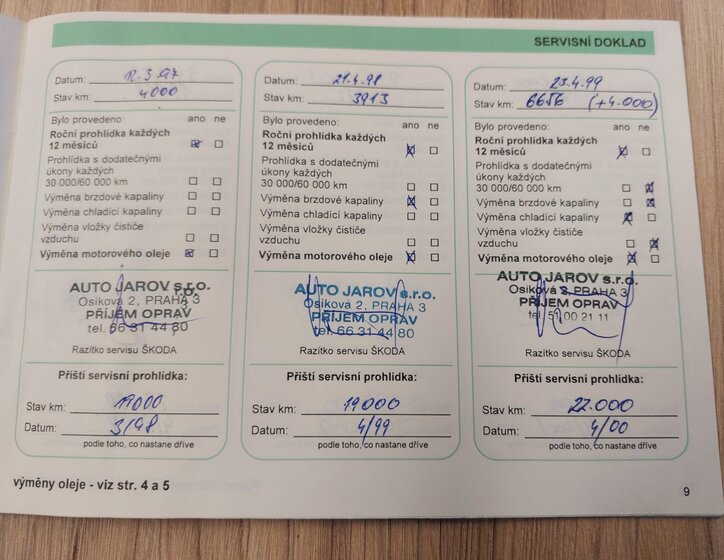 SERVISNÍ DOKLAD
Datum: 12.3.97
Stav km: 4000
Bylo provedeno: ano ne
Roční prohlídka každých
12 měsíců
Prohlídka s dodatečnými
úkony každých
30 000/60 000 km
Výměna brzdové kapaliny
Výměna chladící kapaliny
Výměna vložky čističe
vzduchu
Výměna motorového oleje
AUTO JAROV s.r.o.
Osiková 2, PRAHA 3
PŘÍJEM OPRAV
tel. 66 31 44 80
Razítko servisu ŠKODA
Příští servisní prohlídka:
Stav km: 19000
Datum: 3/98
podle toho, co nastane dříve
Datum: 21.4.98
Stav km: 3913
Bylo provedeno: ano ne
Roční prohlídka každých
12 měsíců
Prohlídka s dodatečnými
úkony každých
30 000/60 000 km
Výměna brzdové kapaliny
Výměna chladící kapaliny
Výměna vložky čističe
vzduchu
Výměna motorového oleje
AUTO JAROV s.r.o.
Osiková 2, PRAHA 3
PŘÍJEM OPRAV
tel. 66 31 44 80
Razítko servisu ŠKODA
Příští servisní prohlídka:
Stav km: 19000
Datum: 4/99
podle toho, co nastane dříve
Datum: 23.4.99
Stav km: (+4.000)
Bylo provedeno: ano ne
Roční prohlídka každých
12 měsíců
Prohlídka s dodatečnými
úkony každých
30 000/60 000 km
Výměna brzdové kapaliny
Výměna chladící kapaliny
Výměna vložky čističe
vzduchu
Výměna motorového oleje
AUTO JAROV s.r.o.
Osiková 2, PRAHA 3
PŘÍJEM OPRAV
tel. 51 00 21 11
Razítko servisu ŠKODA
Příští servisní prohlídka:
Stav km: 22.000
Datum: 4/00
podle toho, co nastane dříve
výměny oleje - viz str. 4 a 5
9